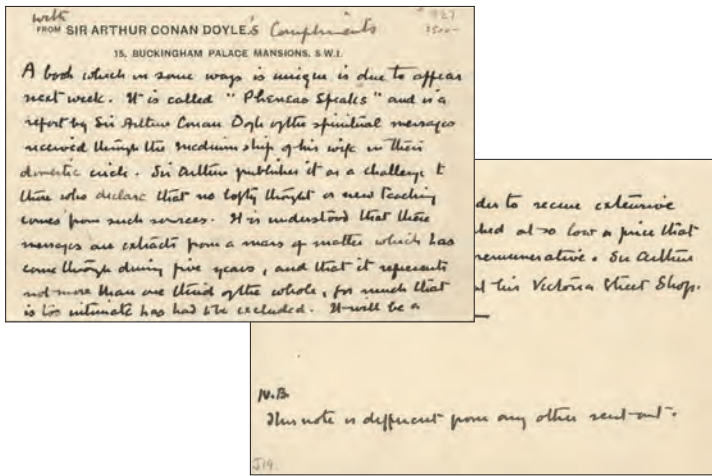 with
FROM SIR ARTHUR CONAN DOYLE's Compliments
15, BUCKINGHAM PALACE MANSIONS, S.W.1.
A book which in some ways is unique is due to appear
next week. It is called "Pheneas Speaks" and is a
report by Sir Arthur Conan Doyle of the spiritual messages
received through the mediumship of his wife in their
domestic circle. Sir Arthur publishes it as a challenge to
those who declare that no lofty thought or new teaching
comes from such sources. It is understood that these
messages are extracts from a mass of matter which has
come through during five years, and that it represents
not more than one third of the whole, for much that
is too intimate has had to be excluded. It will be a
der to receive extensive
hed at so low a price that
remunerative. Sir Arthur
his Victoria Street Shop.
N.B.
This note is different from any other sent out.
J19.